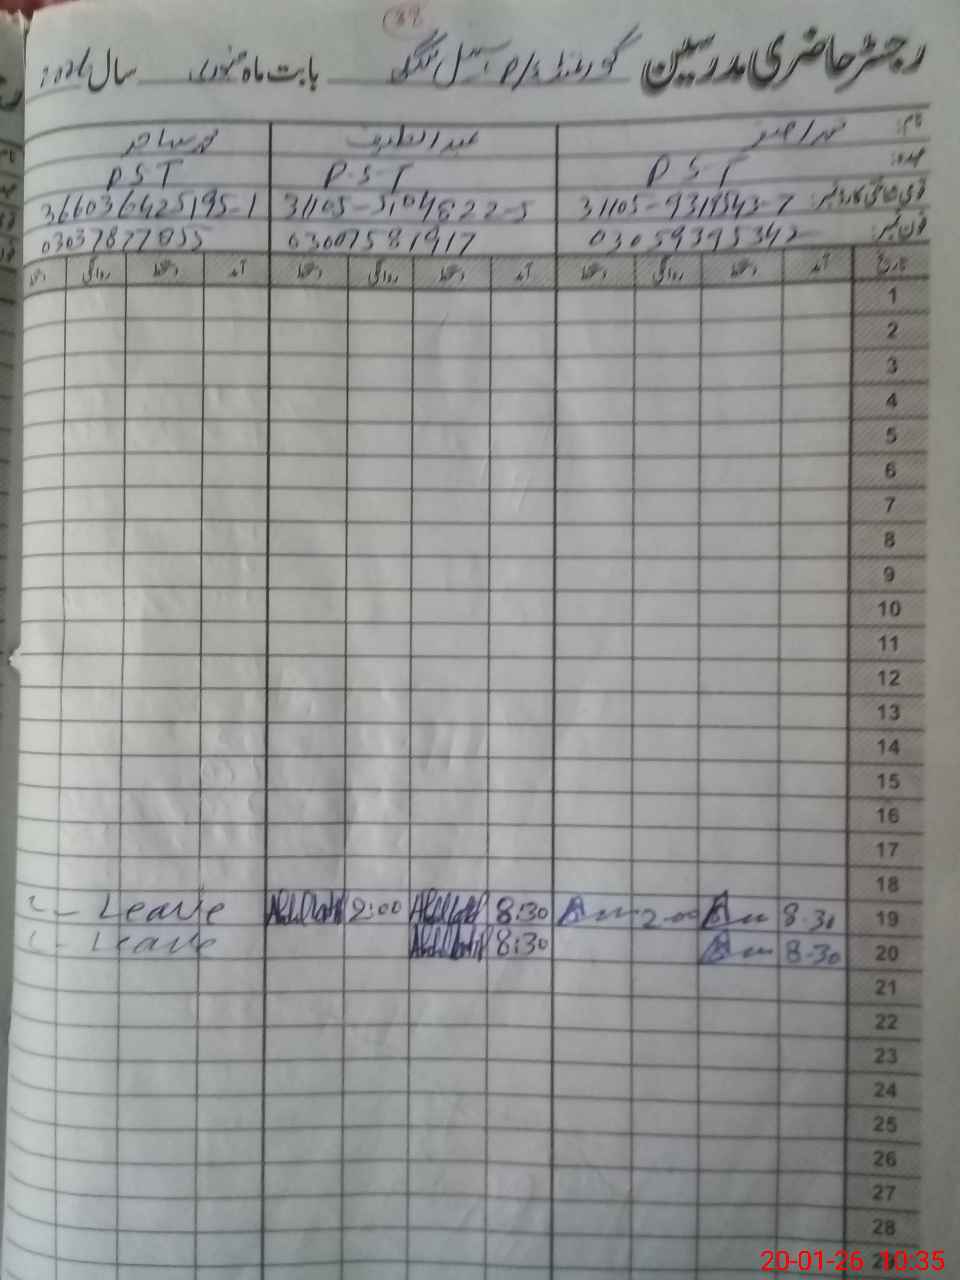 رجسٹر حاضری مدرسین گورنمنٹ بابت ماہ جنوری سال
نام: محمد اصغر عبدالطیف محمد ساجد
عہدہ: P S T P.S.T P S T
قومی شناختی کارڈ نمبر: 31105-9319543-7 31105-5104822-5 366036425195-1
فون نمبر: 03059395342 03007581917 03037877055
تاریخ آمد دستخط روانگی دستخط آمد دستخط روانگی دستخط آمد دستخط روانگی دستخط
1
2
3
4
5
6
7
8
9
10
11
12
13
14
15
16
17
18
19 8.30 2-00 8:30 2:00 Leave
20 8-30 8:30 Leave
21
22
23
24
25
26
27
28
29
20-01-26 10:35